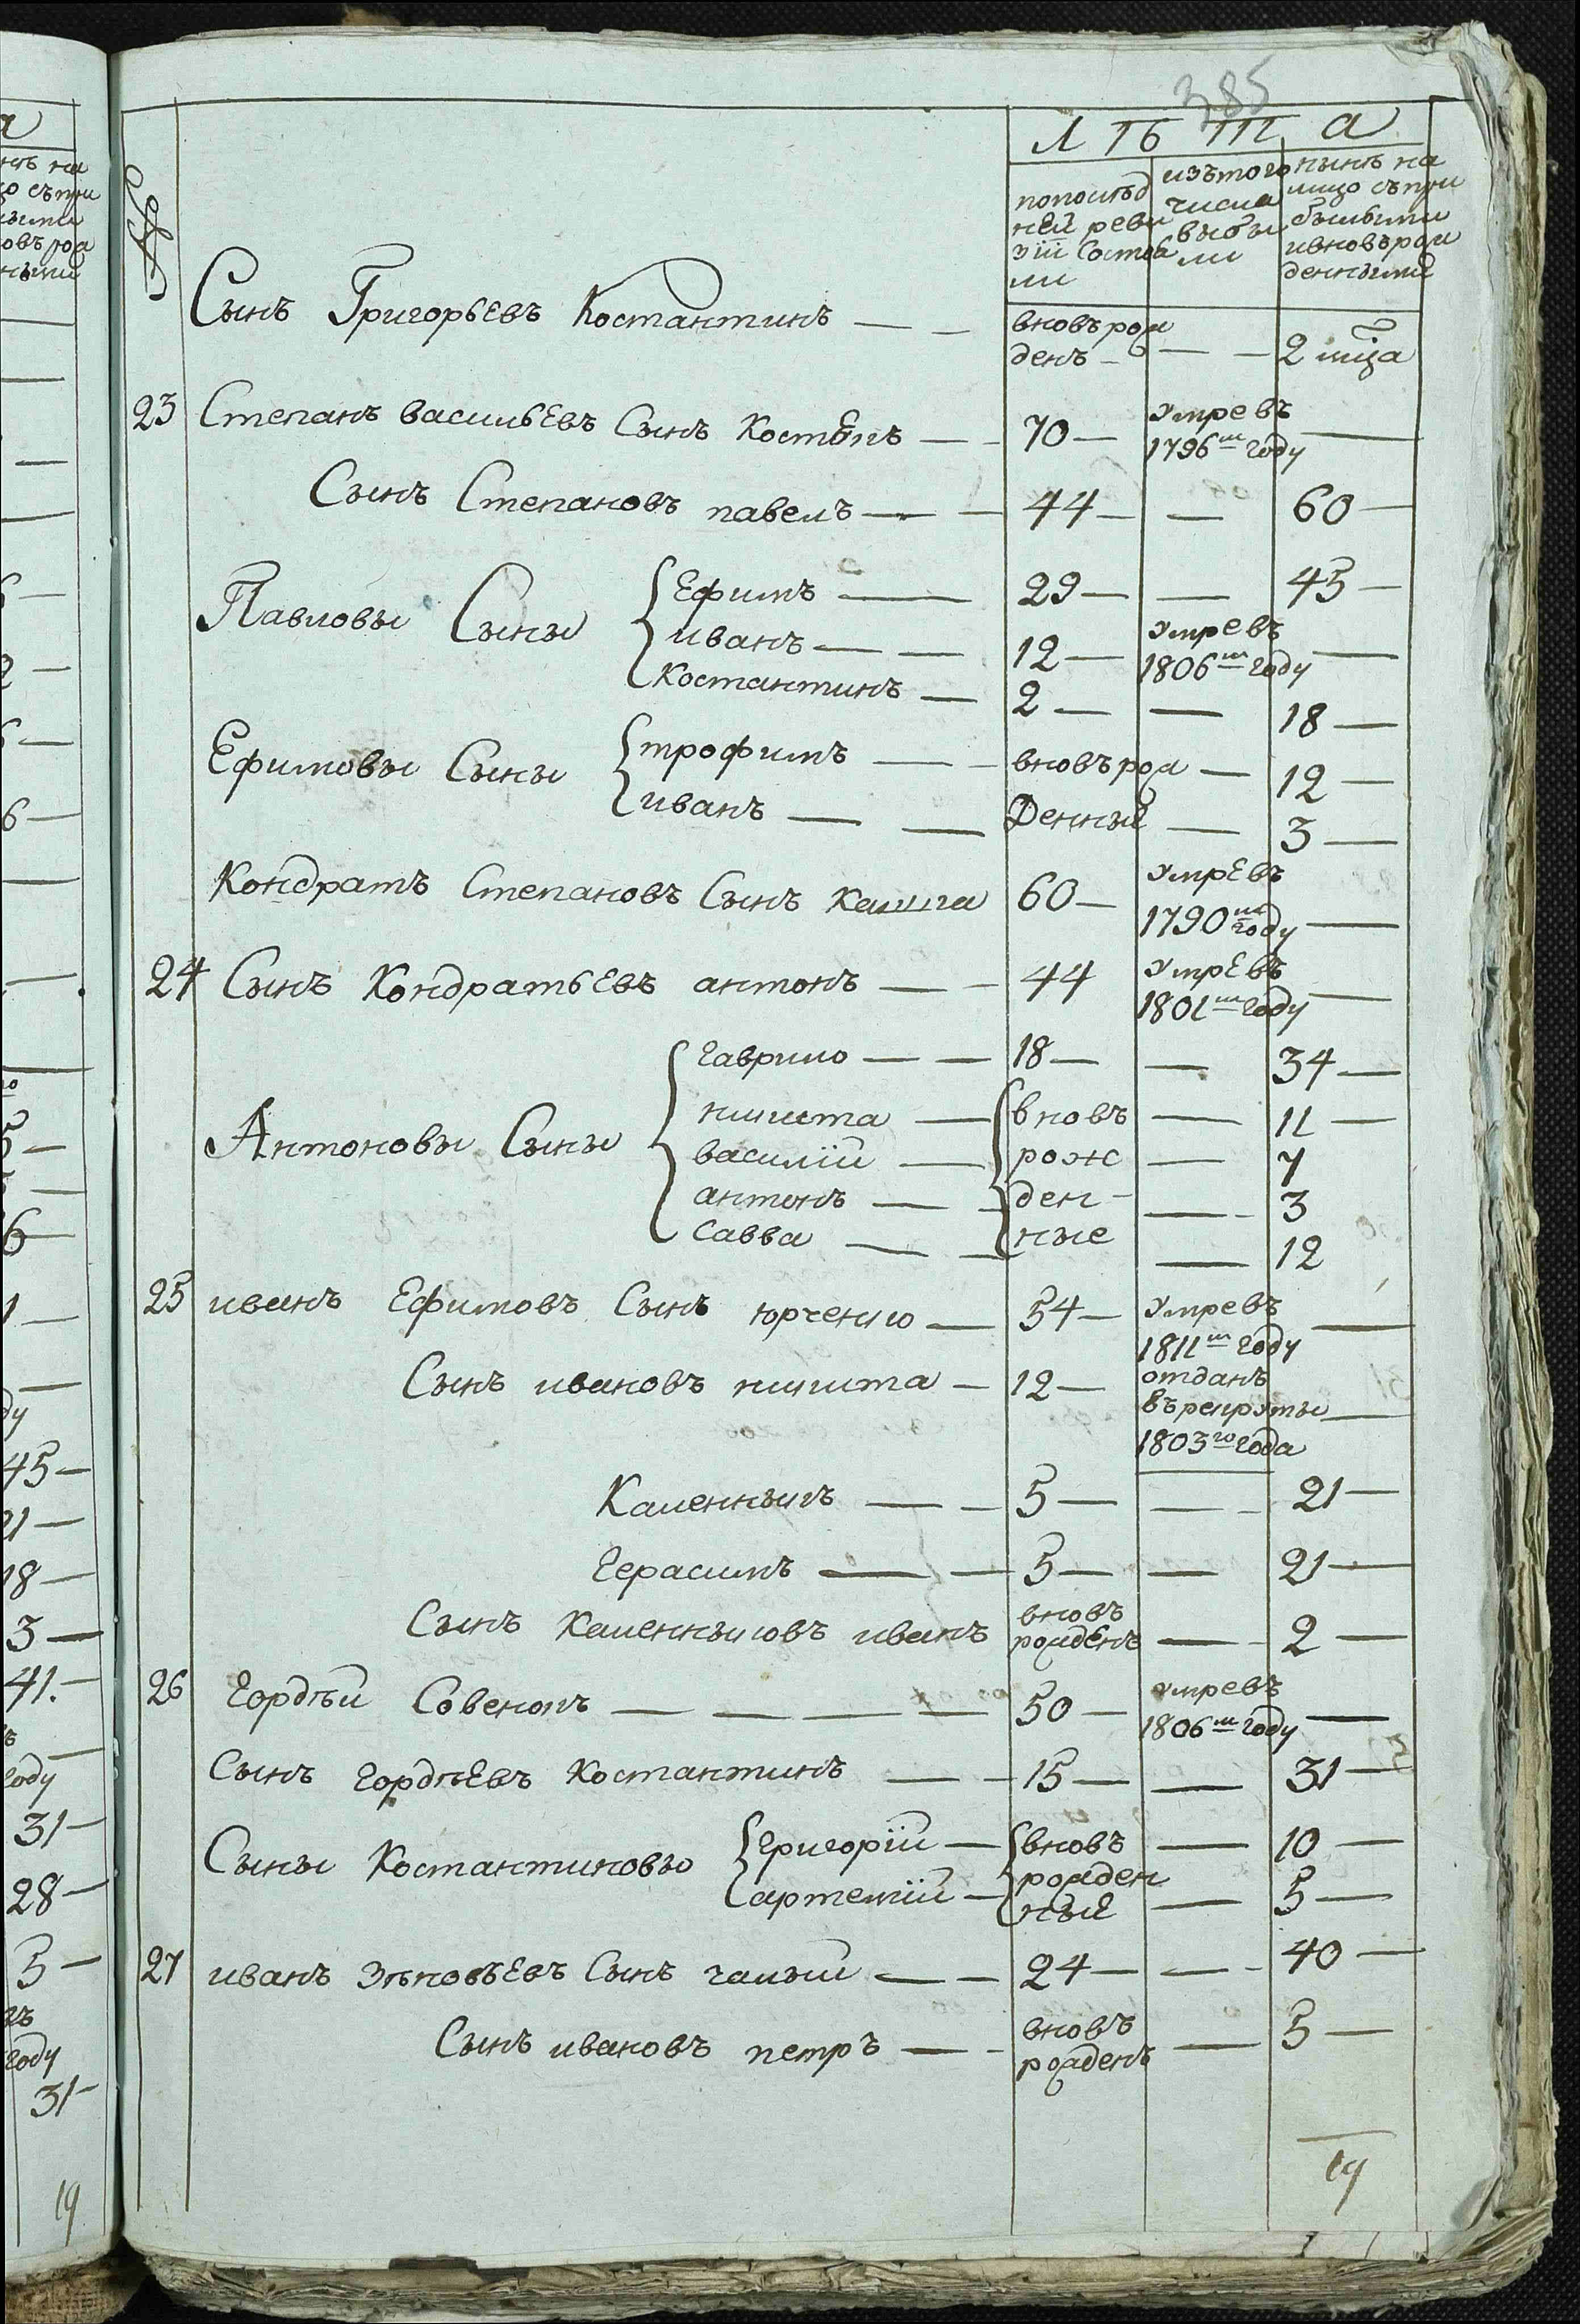 385
№
ЛѢТА
попослѣд
ней реви
зіи состоя
ли
изътого
числа
выбы
ли
нынѣ на
лицо съпри
былыми
ивновърож
денными
Сынъ Григорьевъ Костантинъ — — вновърож
денъ — — — 2 мца
23 Степанъ васильевъ Сынъ — 70 — умре въ
1796м году —
Сынъ Степановъ павелъ — — 44 — — 60 —
Павловы Сыны { Ефимъ — 29 — — 45 —
иванъ — — 12 — умре въ
1806м году —
Костантинъ — 2 — — 18 —
Ефимовы Сыны { трофимъ — — вновърож — 12 —
иванъ — — денные — 3 —
Кондратъ Степановъ Сынъ 60 — умре въ
1790м году —
24 Сынъ Кондратьевъ антонъ — — 44 умре въ
1801м году —
гаврило — — 18 — — 34 —
Антоновы Сыны { никита — вновъ — 11 —
василій — рож — 7
антонъ — — ден- — — 3
савва — — ные — 12
25 иванъ Ефимовъ Сынъ юрченко — 54 — умре въ
1811м году —
Сынъ ивановъ никита — 12 — отданъ
върекруты —
1803го года
Каленникъ — — 5 — — — 21 —
Герасимъ — — 5 — — 21 —
Сынъ Каленниковъ иванъ вновъ
рожденъ — — 2 —
26 Гордѣй Совенокъ — — — — 50 — умре въ
1806м году —
Сынъ гордѣевъ Костантинъ — — 15 — — 31 —
Сыны Костантиновы { григорій — вновъ — 10 —
артемій — рожден
ные — 5 —
27 иванъ Зѣновьевъ Сынъ галый — — 24 — — — 40 —
Сынъ ивановъ петръ — — вновъ
рожденъ — 5 —
19